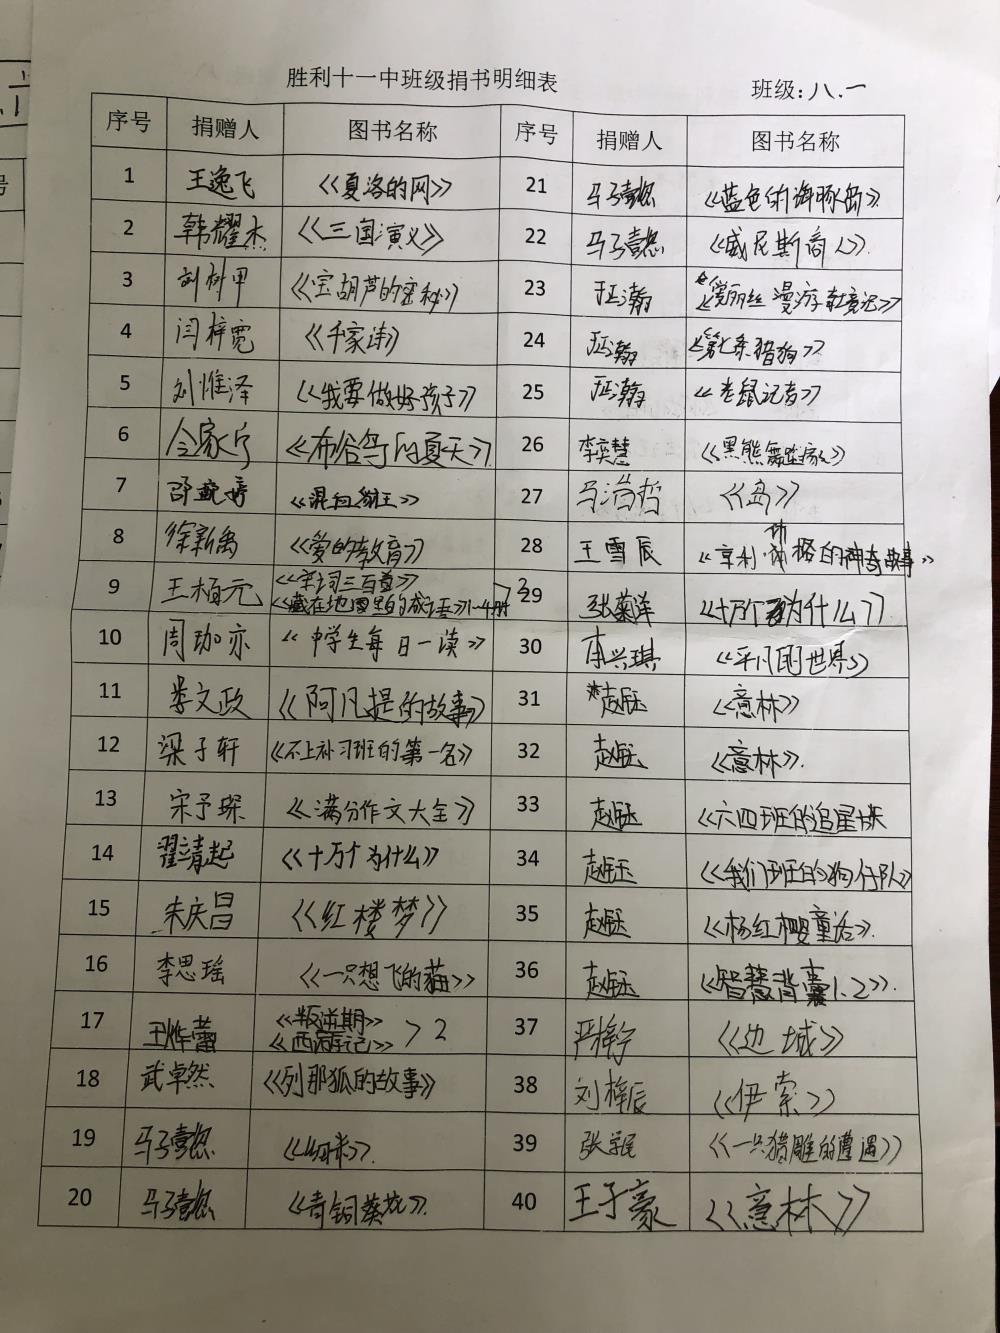 胜利十一中班级捐书明细表 班级:八.一
序号 捐赠人 图书名称 序号 捐赠人 图书名称
1 王逸飞 《夏洛的网》 21 《蓝色的海豚岛》
2 韩耀杰 《三国演义》 22 《威尼斯商人》
3 刘树甲 《宝胡芦的密秘》 23 《爱丽丝漫游奇境记》
4 闫梓宽 《千家诗》 24 《第七条猎狗》
5 刘惟泽 《我要做好孩子》 25 《老鼠记者》
6 《布谷鸟的夏天》 26 李奕慧 《黑熊舞蹈家》
7 《混血豺王》 27 马浩哲 《岛》
8 徐新禹 《爱的教育》 28 王雪辰 《亨利 格的神奇故事》
9 王柏元 《宋词三百首》
《藏在地图里的成语》1~4册 >2 29 张菊洋 《十万个为什么》
10 周珈亦 《中学生每日一读》 30 李兴琪 《平凡的世界》
11 娄文政 《阿凡提的故事》 31 赵钰 《意林》
12 梁子轩 《不上补习班的第一名》 32 赵钰 《意林》
13 宋予琛 《满分作文大全》 33 赵钰 《六四班的追星族
14 翟靖起 《十万个为什么》 34 赵钰 《我们班的狗仔队》
15 朱庆昌 《红楼梦》 35 赵钰 《杨红樱童话》
16 李思瑶 《一只想飞的猫》 36 赵钰 《智慧背囊1.2》
17 王烨蕾 《叛逆期》
《西游记》 >2 37 严梓宁 《边城》
18 武卓然 《列那狐的故事》 38 刘梓辰 《伊索》
19 《幼米》 39 《一只猎雕的遭遇》
20 《青铜葵花》 40 王子豪 《意林》